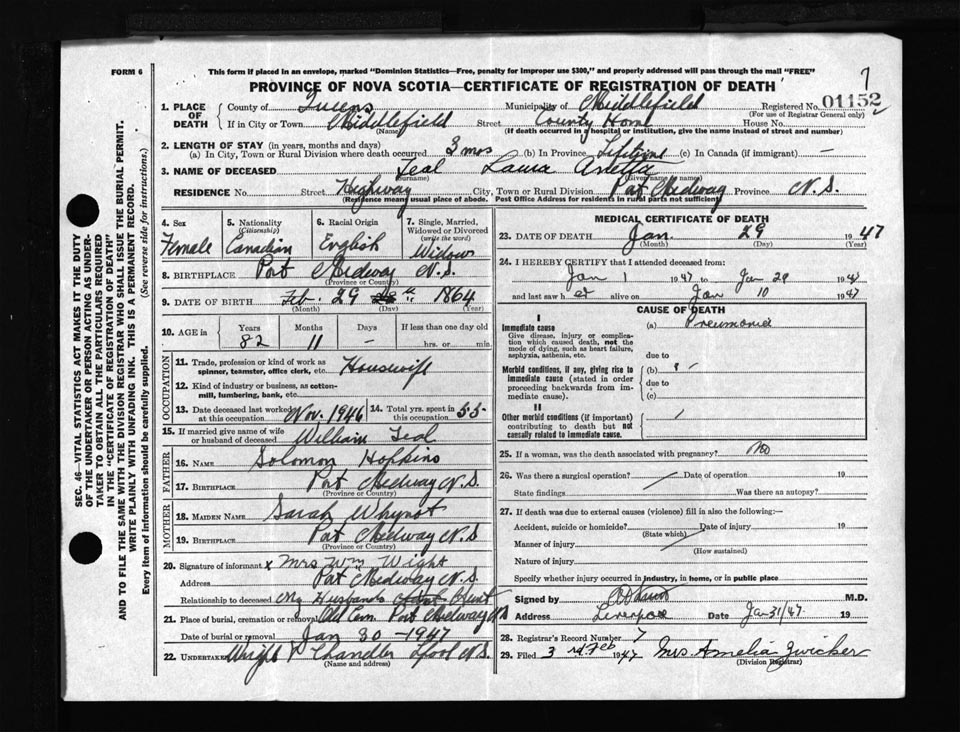 FORM 6
This form if placed in an envelope, marked "Dominion Statistics—Free, penalty for improper use $300," and properly addressed will pass through the mail "FREE"
7
PROVINCE OF NOVA SCOTIA—CERTIFICATE OF REGISTRATION OF DEATH
1. PLACE OF DEATH County of Queens Municipality of Middlefield Registered No. 01152
(For use of Registrar General only)
If in City or Town Middlefield Street County Home House No.
(Name) (If death occurred in a hospital or institution, give the name instead of street and number)
2. LENGTH OF STAY (in years, months and days)
(a) In City, Town or Rural Division where death occurred 3 mos (b) In Province Lifetime (c) In Canada (if immigrant) —
3. NAME OF DECEASED Teal Laura
(Surname) (Given name or names)
RESIDENCE No. Street Highway City, Town or Rural Division Port Medway Province N.S.
(Residence means usual place of abode. Post Office Address for residents in rural parts not sufficient)
4. Sex Female
5. Nationality (Citizenship) Canadian
6. Racial Origin English
7. Single, Married, Widowed or Divorced (write the word) Widow
8. BIRTHPLACE Port Medway N.S.
(Province or Country)
9. DATE OF BIRTH Feb. 29 1864
(Month) (Day) (Year)
10. AGE in Years Months Days If less than one day old
82 11 — hrs. or min.
OCCUPATION
11. Trade, profession or kind of work as spinner, teamster, office clerk, etc. Housewife
12. Kind of industry or business, as cotton-mill, lumbering, bank, etc.
13. Date deceased last worked at this occupation Nov. 1946 14. Total yrs. spent in this occupation 55
15. If married give name of wife or husband of deceased William Teal
FATHER
16. NAME Solomon Hopkins
17. BIRTHPLACE Port Medway N.S.
(Province or Country)
MOTHER
18. MAIDEN NAME Sarah Whynot
19. BIRTHPLACE Port Medway N.S
(Province or Country)
20. Signature of informant x Mrs Wm Wight
Address Port Medway N.S.
Relationship to deceased My Husbands Aunt
21. Place of burial, cremation or removal Old Cem. Port Medway NS
Date of burial or removal Jan 30 - 1947
22. UNDERTAKER Wright & Chandler Lpool N.S.
(Name and address)
MEDICAL CERTIFICATE OF DEATH
23. DATE OF DEATH Jan. 29 1947
(Month) (Day) (Year)
24. I HEREBY CERTIFY that I attended deceased from:
Jan 1 1947 to Jan 29 1947
and last saw her alive on Jan 10 1947
CAUSE OF DEATH
I
Immediate cause (a) Pneumonia
Give disease, injury or complication which caused death, not the mode of dying, such as heart failure, asphyxia, asthenia, etc.
due to
Morbid conditions, if any, giving rise to immediate cause (stated in order proceeding backwards from immediate cause).
(b)
due to
(c)
II
Other morbid conditions (if important) contributing to death but not causally related to immediate cause.
25. If a woman, was the death associated with pregnancy? No
26. Was there a surgical operation? Date of operation 19
State findings Was there an autopsy?
27. If death was due to external causes (violence) fill in also the following:—
Accident, suicide or homicide? Date of injury 19
(State which)
Manner of injury
(How sustained)
Nature of injury
Specify whether injury occurred in industry, in home, or in public place
Signed by M.D.
Address Liverpool Date Jan 31/47. 19
28. Registrar's Record Number 7
29. Filed 3rd Feb 1947 Mrs. Amelia Zwicker
(Division Registrar)
SEC. 46—VITAL STATISTICS ACT MAKES IT THE DUTY
OF THE UNDERTAKER OR PERSON ACTING AS UNDER-
TAKER TO OBTAIN ALL THE PARTICULARS REQUIRED
IN THE "CERTIFICATE OF REGISTRATION OF DEATH"
AND TO FILE THE SAME WITH THE DIVISION REGISTRAR WHO SHALL ISSUE THE BURIAL PERMIT.
WRITE PLAINLY WITH UNFADING INK. THIS IS A PERMANENT RECORD.
Every item of information should be carefully supplied. (See reverse side for instructions.)